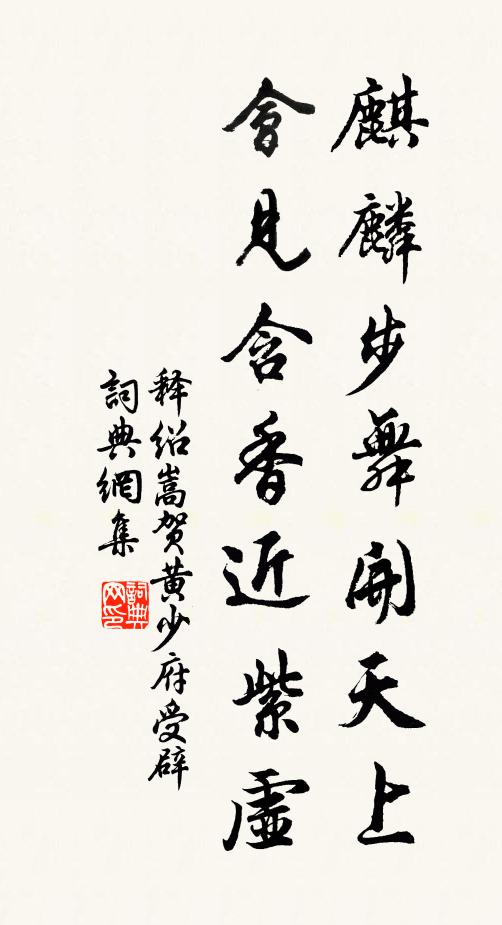 麒麟步舞開天上
會見含香近紫虛
釋紹嵩賀黃少府受辟
詞典網集
詞典网印